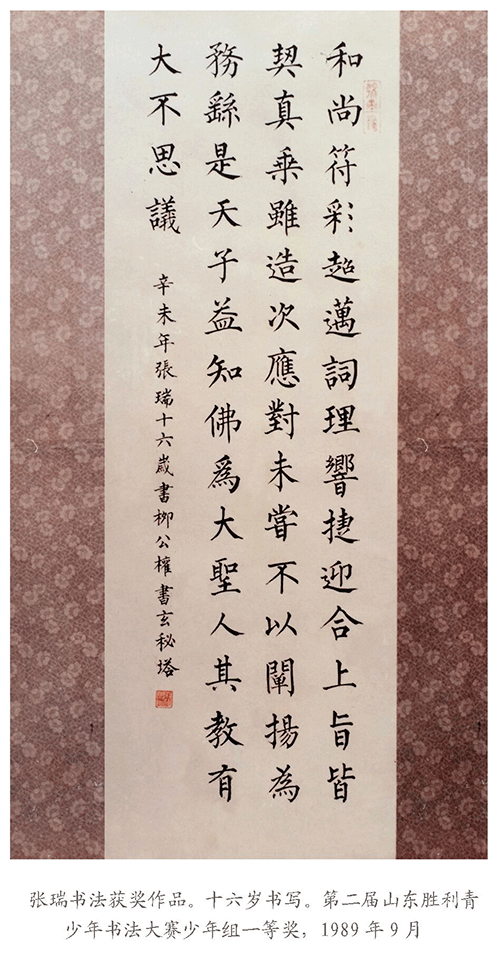 和尚符彩超邁詞理響捷迎合上旨皆
契真乘雖造次應對未嘗不以闡揚為
務繇是天子益知佛為大聖人其教有
大不思議
辛未年張瑞十六歲書柳公權書玄秘塔
张瑞书法获奖作品。十六岁书写。第二届山东胜利青
少年书法大赛少年组一等奖，1989年9月